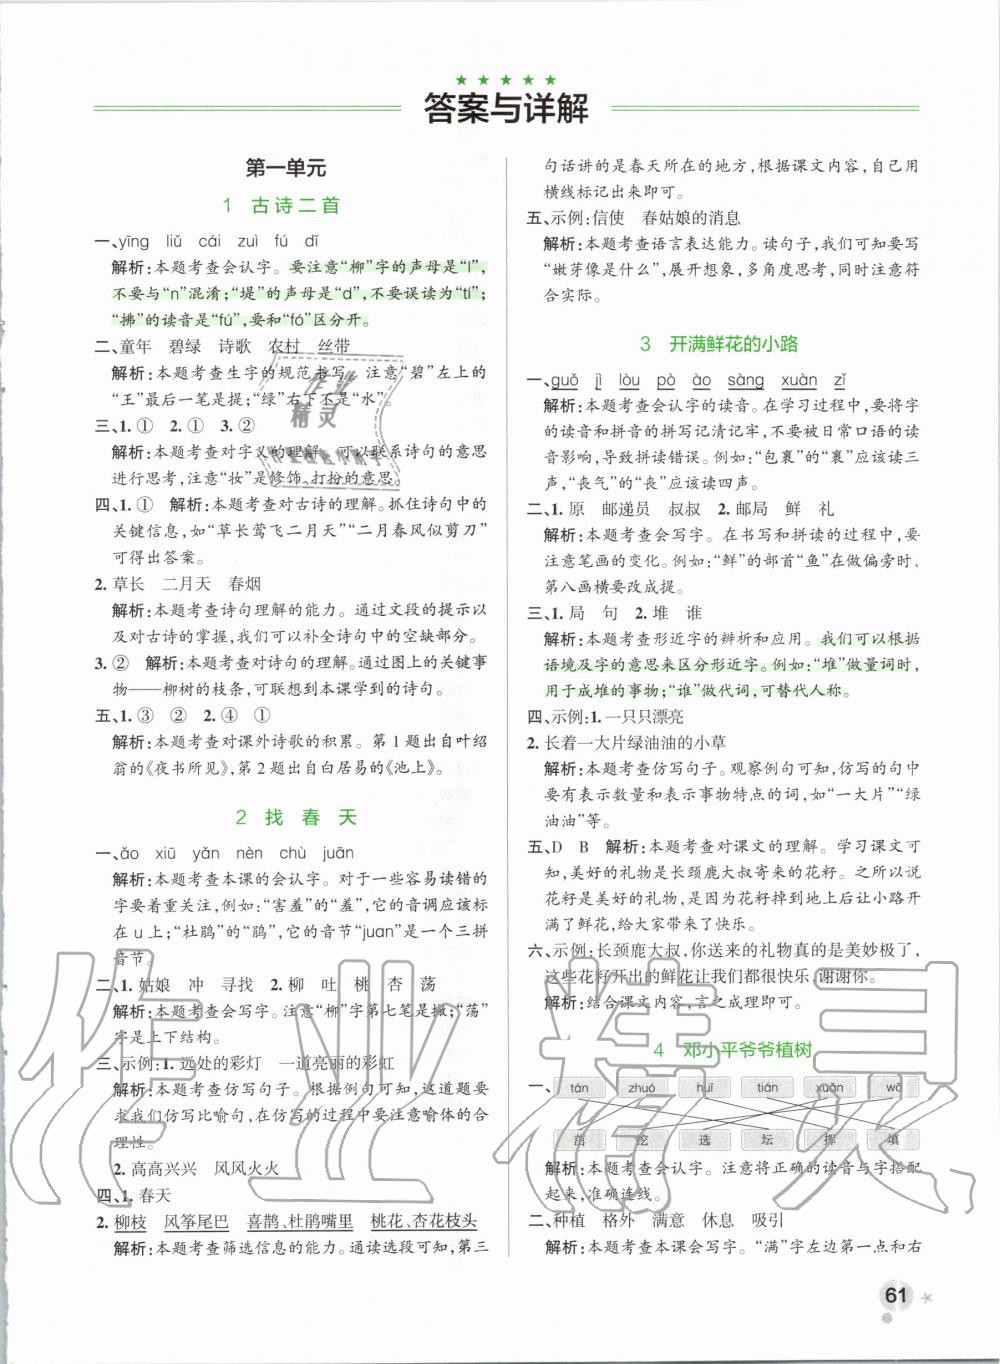 答案与详解
第一单元
1 古诗二首
一、yīng liǔ cái zuì fú dī
解析:本题考查会认字。要注意“柳”字的声母是“l”,
不要与“n”混淆;“堤”的声母是“d”,不要误读为“tí”;
“拂”的读音是“fú”,要和“fó”区分开。
二、童年 碧绿 诗歌 农村 丝带
解析:本题考查生字的规范书写。注意“碧”左上的
“王”最后一笔是提;“绿”右下不是“水”。
三、1. ① 2. ① 3. ②
解析:本题考查对字义的理解。可以联系诗句的意思
进行思考,注意“妆”是修饰、打扮的意思。
四、1. ① 解析:本题考查对古诗的理解。抓住诗句中的
关键信息,如“草长莺飞二月天”“二月春风似剪刀”
可得出答案。
2. 草长 二月天 春烟
解析:本题考查诗句理解的能力。通过文段的提示以
及对古诗的掌握,我们可以补全诗句中的空缺部分。
3. ② 解析:本题考查对诗句的理解。通过图上的关键事
物——柳树的枝条,可联想到本课学到的诗句。
五、1. ③ ② 2. ④ ①
解析:本题考查对课外诗歌的积累。第 1 题出自叶绍
翁的《夜书所见》,第 2 题出自白居易的《池上》。
2 找 春 天
一、ǎo xiū yǎn nèn chù juān
解析:本题考查本课的会认字。对于一些容易读错的
字要着重关注,例如:“害羞”的“羞”,它的音调应该标
在 u 上;“杜鹃”的“鹃”,它的音节“juan”是一个三拼
音节。
二、1. 姑娘 冲 寻找 2. 柳 吐 桃 杏 荡
解析:本题考查会写字。注意“柳”字第七笔是撇;“荡”
字是上下结构。
三、示例:1. 远处的彩灯 一道亮丽的彩虹
解析:本题考查仿写句子。根据例句可知,这道题要
求我们仿写比喻句,在仿写的过程中要注意喻体的合
理性。
2. 高高兴兴 风风火火
四、1. 春天
2. 柳枝 风筝尾巴 喜鹊、杜鹃嘴里 桃花、杏花枝头
解析:本题考查筛选信息的能力。通读选段可知,第三
句话讲的是春天所在的地方,根据课文内容,自己用
横线标记出来即可。
五、示例:信使 春姑娘的消息
解析:本题考查语言表达能力。读句子,我们可知要写
“嫩芽像是什么”,展开想象,多角度思考,同时注意符
合实际。
3 开满鲜花的小路
一、guǒ jì lòu pò ào sàng xuàn zǐ
解析:本题考查会认字的读音。在学习过程中,要将字
的读音和拼音的拼写记清记牢,不要被日常口语的读
音影响,导致拼读错误。例如:“包裹”的“裹”应该读三
声,“丧气”的“丧”应该读四声。
二、1. 原 邮递员 叔叔 2. 邮局 鲜 礼
解析:本题考查会写字。在书写和拼读的过程中,要
注意笔画的变化。例如:“鲜”的部首“鱼”在做偏旁时,
第八画横要改成提。
三、1. 局 句 2. 堆 谁
解析:本题考查形近字的辨析和应用。我们可以根据
语境及字的意思来区分形近字。例如:“堆”做量词时,
用于成堆的事物;“谁”做代词,可替代人称。
四、示例:1. 一只只漂亮
2. 长着一大片绿油油的小草
解析:本题考查仿写句子。观察例句可知,仿写的句中
要有表示数量和表示事物特点的词,如“一大片”“绿
油油”等。
五、D B 解析:本题考查对课文的理解。学习课文可
知,美好的礼物是长颈鹿大叔寄来的花籽。之所以说
花籽是美好的礼物,是因为花籽掉到地上后让小路开
满了鲜花,给大家带来了快乐。
六、示例:长颈鹿大叔,你送来的礼物真的是美妙极了,
这些花籽开出的鲜花让我们都很快乐,谢谢你。
解析:结合课文内容,言之成理即可。
4 邓小平爷爷植树
一、tán zhuó huī tián xuǎn wā
苗 挖 选 坛 挥 填
解析:本题考查会认字。注意将正确的读音与字搭配
起来,准确连线。
二、种植 格外 满意 休息 吸引
解析:本题考查本课会写字。“满”字左边第一点和右
61
作业
精灵
作业精灵